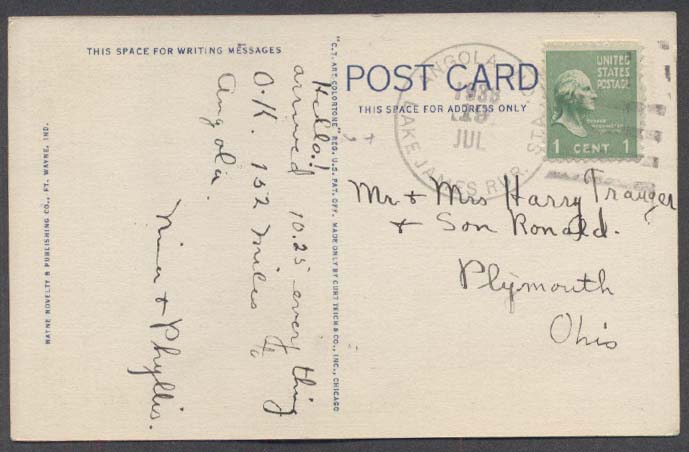 THIS SPACE FOR WRITING MESSAGES
Hello!
arrived 10.25 everything
O.K. 152 miles to
Angola.
+ Phyllis.
WAYNE NOVELTY & PUBLISHING CO., FT. WAYNE, IND.
"C.T. ART-COLORTONE" REG. U.S. PAT. OFF. MADE ONLY BY CURT TEICH & CO., INC., CHICAGO
POST CARD
THIS SPACE FOR ADDRESS ONLY
ANGOLA
1938
JUL
LAKE JAMES RUR. STA.
UNITED
STATES
POSTAGE
1 CENT 1
Mr + Mrs Harry Trauger
+ Son Ronald.
Plymouth
Ohio